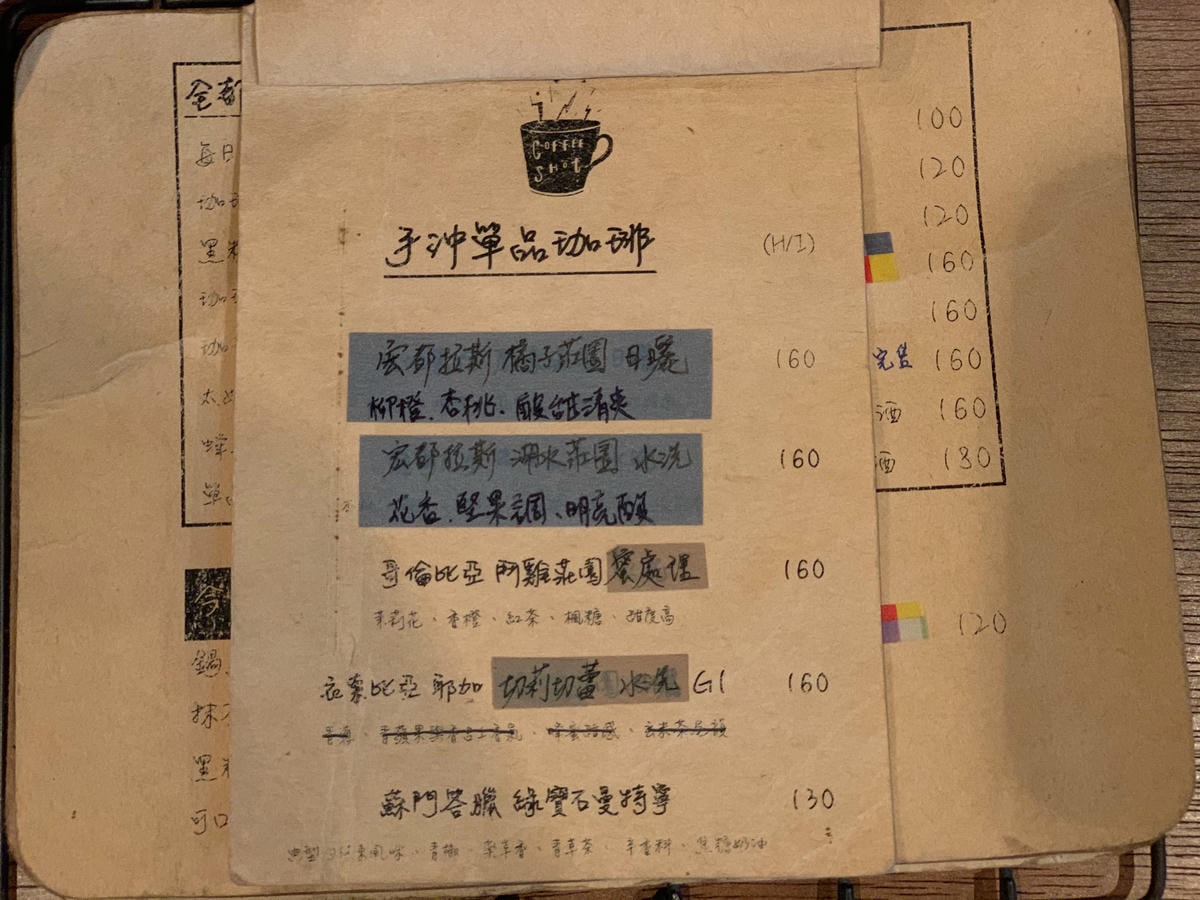 COFFEE
SHOT
手沖單品咖啡 (H/I)
宏都拉斯 橘子莊園 日曬 160
柳橙、杏桃、酸甜清爽
宏都拉斯 湧水莊園 水洗 160
花香、堅果調、明亮酸
哥倫比亞 鬥雞莊園 蜜處理 160
茉莉花、香橙、紅茶、楓糖、甜度高
衣索比亞 耶加 切莉切蕾 水洗 G1 160
青蘋果 蜂蜜甜感、玄米茶尾韻
蘇門答臘 綠寶石曼特寧 130
典型 風味、青椒、藥草香、青草茶、辛香料、焦糖奶油
每日
咖
黑
咖
咖
太
蜂
單
鍋
抹
黑
可
100
120
120
160
160
完售 160
酒 160
酒 130
120